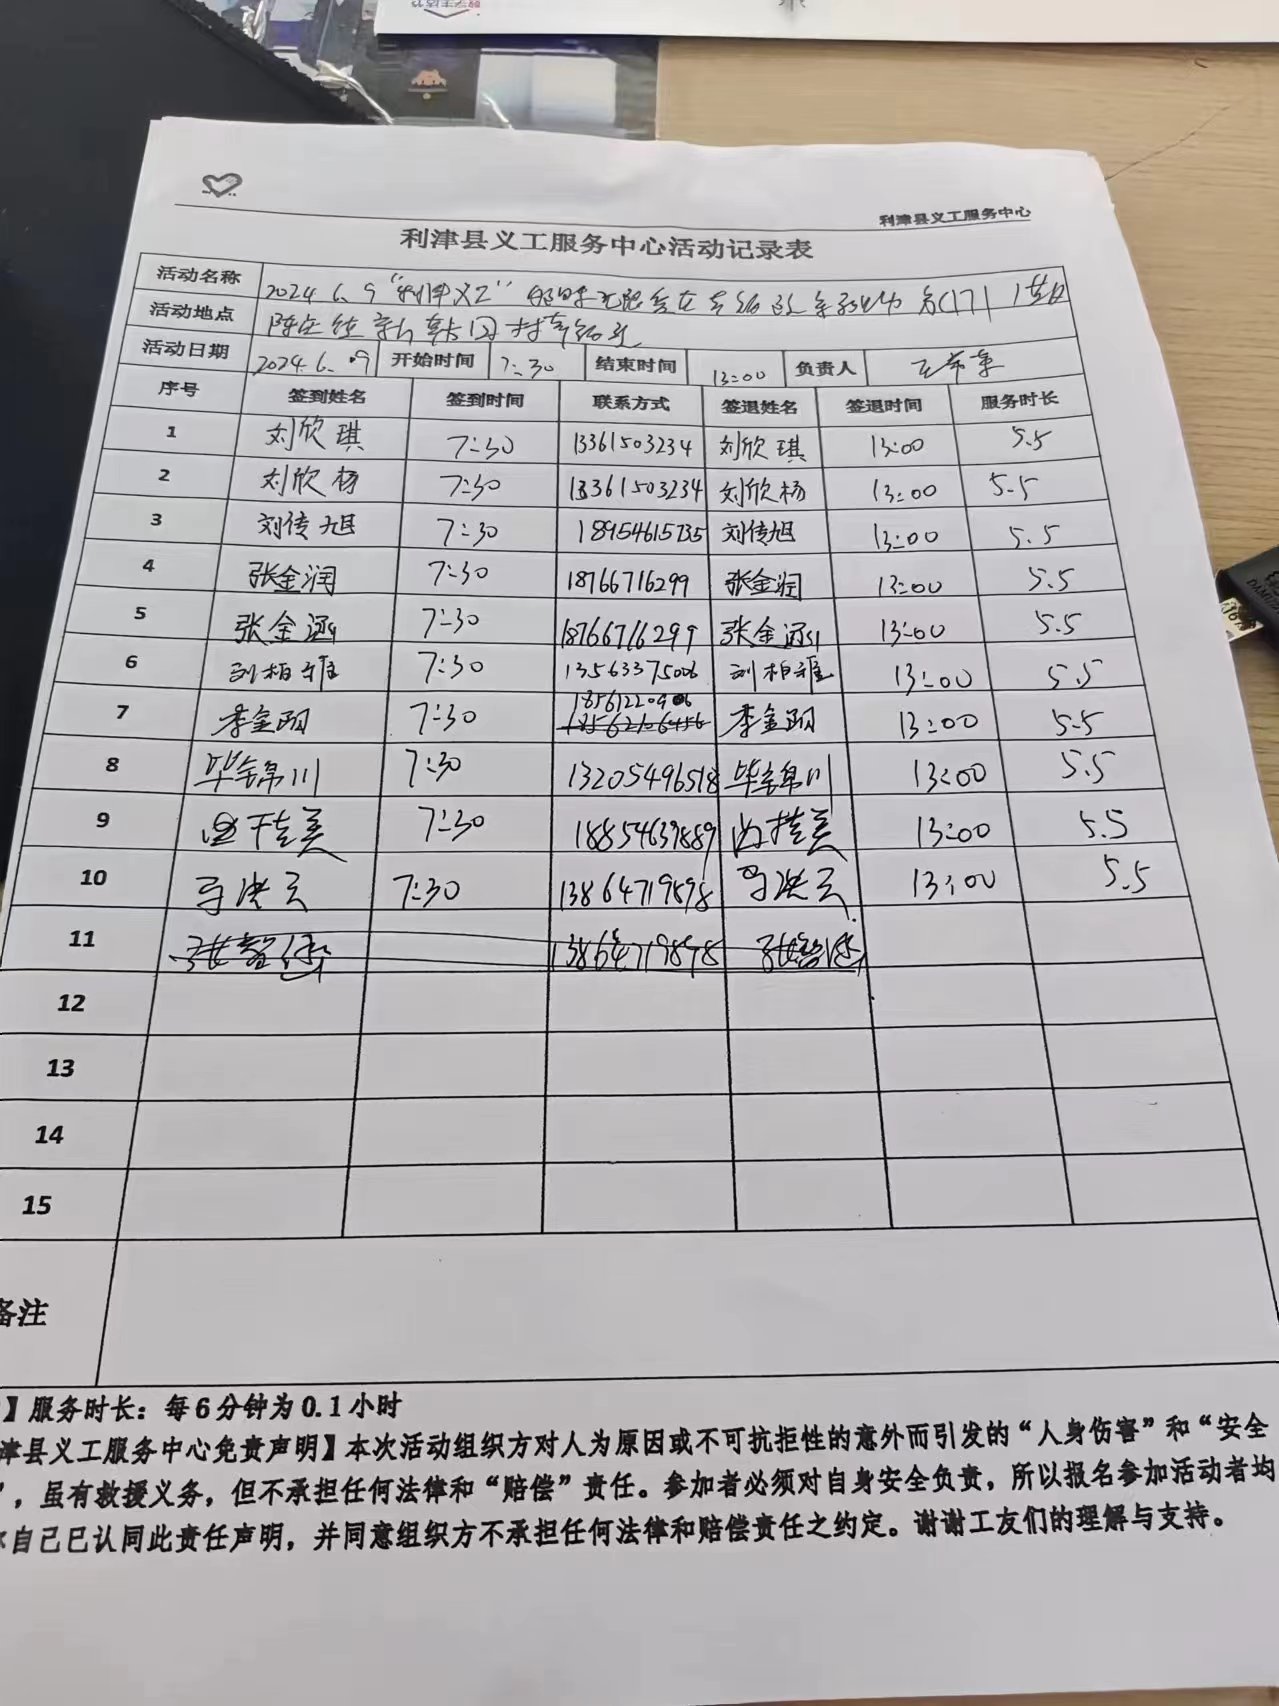 利津县义工服务中心
利津县义工服务中心活动记录表
活动名称 2024.6.9“利津义工”
活动地点
活动日期 2024.6.09 开始时间 7:30 结束时间 13:00 负责人
序号 签到姓名 签到时间 联系方式 签退姓名 签退时间 服务时长
1 刘欣琪 7:30 13361503234 刘欣琪 13:00 5.5
2 刘欣杨 7:30 13361503234 刘欣杨 13:00 5.5
3 刘传旭 7:30 18954615735 刘传旭 13:00 5.5
4 张金润 7:30 18766716299 张金润 13:00 5.5
5 张金涵 7:30 18766716299 张金涵 13:00 5.5
6 刘柏雅 7:30 13563375006 刘柏雅 13:00 5.5
7 李金玥 7:30 李金玥 13:00 5.5
8 毕锦川 7:30 13205496518 毕锦川 13:00 5.5
9 7:30 18854639889 13:00 5.5
10 马洪云 7:30 13864719898 马洪云 13:00 5.5
11 13864719898
12
13
14
15
备注
】服务时长：每6分钟为0.1小时
津县义工服务中心免责声明】本次活动组织方对人为原因或不可抗拒性的意外而引发的“人身伤害”和“安全
”，虽有救援义务，但不承担任何法律和“赔偿”责任。参加者必须对自身安全负责，所以报名参加活动者均
自己已认同此责任声明，并同意组织方不承担任何法律和赔偿责任之约定。谢谢工友们的理解与支持。